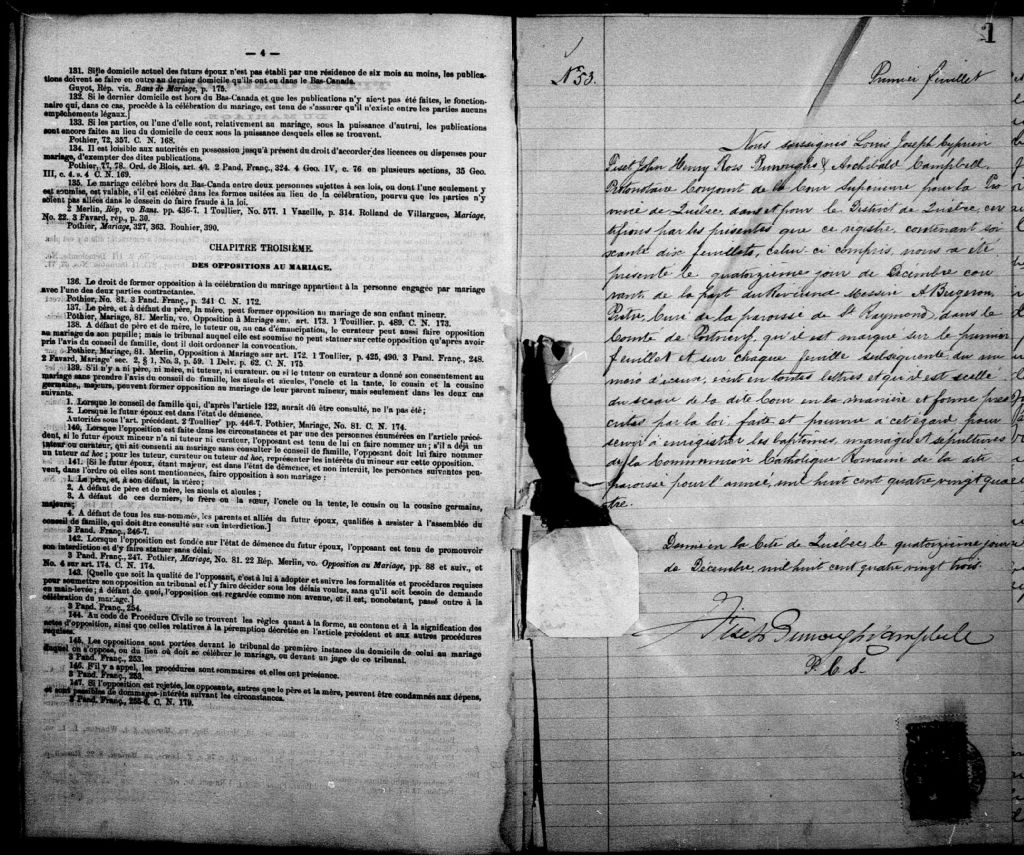 — 4 —
131. Si le domicile actuel des futurs époux n'est pas établi par une résidence de six mois au moins, les publica-
tions doivent se faire en outre au dernier domicile qu'ils ont eu dans le Bas-Canada.
Guyot, Rép. vis. Bans de Mariage, p. 175.
132. Si le dernier domicile est hors du Bas-Canada et que les publications n'y aient pas été faites, le fonction-
naire qui, dans ce cas, procède à la célébration du mariage, est tenu de s'assurer qu'il n'existe entre les parties aucuns
empêchements légaux.]
133. Si les parties, ou l'une d'elle sont, relativement au mariage, sous la puissance d'autrui, les publications
sont encore faites au lieu du domicile de ceux sous la puissance desquels elles se trouvent.
Pothier, 72, 357. C. N. 168.
134. Il est loisible aux autorités en possession jusqu'à présent du droit d'accorder des licences ou dispenses pour
mariage, d'exempter des dites publications.
Pothier, 77, 78. Ord. de Blois, art. 40. 2 Pand. Franç., 324. 4 Geo. IV, c. 76 en plusieurs sections, 35 Geo.
III, c. 4. s. 4 C. N. 169.
135. Le mariage célébré hors du Bas-Canda entre deux personnes sujettes à ses lois, ou dont l'une seulement y
est soumise, est valable, s'il est célébré dans les formes usitées au lieu de la célébration, pourvu que les parties n'y
soient pas allées dans le dessein de faire fraude à la loi.
2 Merlin, Rép, vo Bans. pp. 436-7. 1 Toullier, No. 577. 1 Vazeille, p. 314. Rolland de Villargues, Mariage,
No. 22. 3 Favard, rép., p. 30.
Pothier, Mariage, 327, 363. Bouhier, 390.
CHAPITRE TROISIÈME.
DES OPPOSITIONS AU MARIAGE.
136. Le droit de former opposition à la célébration du mariage appartient à la personne engagée par mariage
avec l'une des deux parties contractantes.
Pothier, No. 81. 3 Pand. Franç., p. 241 C. N. 172.
137. Le père, et à défaut du père, la mère, peut former opposition au mariage de son enfant mineur.
Pothier, Mariage, 81. Merlin, vo. Opposition à Mariage sur. art. 173. 1 Touillier. p. 489. C. N. 173.
138. A défaut de père et de mère, le tuteur ou, au cas d'émancipation, le curateur peut aussi faire opposition
au mariage de son pupille; mais le tribunal auquel elle est soumise ne peut statuer sur cette opposition qu'après avoir
pris l'avis du conseil de famille, dont il doit ordonner la convocation.
Pothier, Mariage, 81. Merlin, Opposition à Mariage sur art. 172. 1 Toullier, p. 425, 490. 3 Pand. Franç., 248.
2 Favard, Mariage' sec. 2, § 1. No. 3, p. 59. 1 Delv. p. 62. C. N. 175.
139. S'il n'y a ni père, ni mère, ni tuteur, ni curateur, ou si le tuteur ou curateur a donné son consentement au
mariage sans prendre l'avis du conseil de famille, les aïeuls et aïeules, l'oncle et la tante, le cousin et la cousine
germains, majeurs, peuvent former opposition au mariage de leur parent mineur, mais seulement dans les deux cas
suivants.
1. Lorsque le conseil de famille qui, d'après l'article 122, aurait dû être consulté, ne l'a pas été;
2. Lorsque le futur époux est dans l'état de démence.
Autorités sous l'art. précédent. 2 Toullier' pp. 446-7. Pothier, Mariage, No. 81. C. N. 174.
140. Lorsque opposition est faite dans les circonstances et par une des personnes énumérées en l'article précé-
dent, si le futur époux mineur n'a ni tuteur ni curateur, l'opposant est tenu de lui en faire nommer un; s'il a déjà un
tuteur ou curateur, qui ait consenti au mariage sans consulter le conseil de famille, l'opposant doit lui faire nommer
un tuteur ad hoc; pour les tuteur, curateur ou tuteur ad hoc, représenter les intérêts du mineur sur cette opposition.
141. [Si le futur époux, étant majeur, est dans l'état de démence, et non interdit, les personnes suivantes peu-
vent, dans l'ordre où elles sont mentionnées, faire opposition à son mariage:
1. Le père, et, à son défaut, la mère;
2. A défaut de père et de mère, les aïeuls et aïeules;
3. A défaut de ces derniers, le frère ou la sœur, l'oncle ou la tente, le cousin ou la cousine germains,
majeurs;
4. A défaut de tous les sus-nommés, les parents et alliés du futur époux, qualifiés à assister à l'assemblée du
conseil de famille, qui doit être consulté sur son interdiction.]
3 Pand. Franç., 246-7.
142. Lorsque l'opposition est fondée sur l'état de démence du futur époux, l'opposant est tenu de promouvoir
son interdiction et d'y faire statuer sans délai.
3 Pand. Franç., 247. Pothier, Mariage, No. 81. 22 Rép. Merlin, vo. Opposition au Mariage, pp. 88 et suiv., et
No. 4 sur art. 174. C. N. 174.
143. [Quelle que soit la qualité de l'opposant, c'est à lui à adopter et suivre les formalités et procédures requises
pour soumettre son opposition au tribunal et l'y faire décider sous les délais voulus, sans qu'il soit besoin de demande
en main-levée; à défaut de quoi, l'opposition est regardée comme non avenue, et il est, nonobstant, passé outre à la
célébration du mariage.]
3 Pand. Franç., 254.
144. Au code de Procédure Civile se trouvent les règles quant à la forme, au contenu et à la signification des
actes d'opposition, ainsi que celles relatives à la péremption décrétée en l'article précédent et aux autres procédures
requises.
145. Les oppositions sont portées devant le tribunal de première instance du domicile de celui au mariage
duquel on s'oppose, ou du lieu où doit se célébrer le mariage, ou devant un juge de ce tribunal.
3 Pand. Franç., 253.
146. S'il y a appel, les procédures sont sommaires et elles ont préséance.
3 Pand. Franç., 253.
147. Si l'opposition est rejetée, les opposants, autres que le père et la mère, peuvent être condamnés aux dépens,
et sont passibles de dommages-intérêts suivant les circonstances.
3 Pand. Franç., 255-6. C. N. 179.
1
No. 53.
Premier feuillet
Nous soussignés Louis Joseph Cyprien
Fiset John Henry Ross Burroughs & Archibald Campbell
Protonotaire Conjoint de la Cour Supérieure pour la Pro
vince de Québec, dans et pour le District de Québec, cer
tifions par les présentes que ce registre, contenant soi
xante dix feuillets, celui ci compris, nous a été
présenté le quatorzième jour de Décembre cou
rant de la part du Révérend Messire A Bergeron
Ptre, Curé de la paroisse de St Raymond, dans le
Comté de Portneuf, qu'il est marqué sur le premier
feuillet et sur chaque feuille subséquente, du nu
méro d'iceux, écrit en toutes lettres et qu'il est scellé
du sceau de la dite Cour en la manière et forme pres
crites par la loi, faite et pourvue à cet égard, pour
servir à enregistrer les baptêmes, mariages et sépultures
de la Communion Catholique Romaine de la dite
paroisse pour l'année, mil huit cent quatre vingt qua
tre.
Donné en la Cité de Québec, le quatorzième jour
de Décembre, mil huit cent quatre vingt trois.
Fiset Burroughs Campbell
P. C. S.